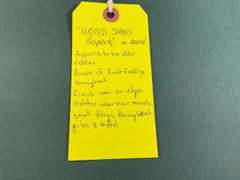 "UNITED STATES
Property" on barrel
Appears to be
Areas of lost finish
throughout
Finish wear on edges
holster wear near muzzle
small dings throughout
grips & metal